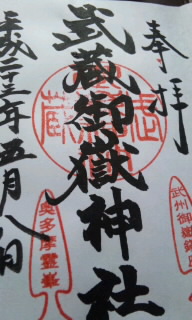 奉拝
武蔵御嶽神社
平成二十三年五月八日
奥多摩霊峯
武州御嶽鎮座